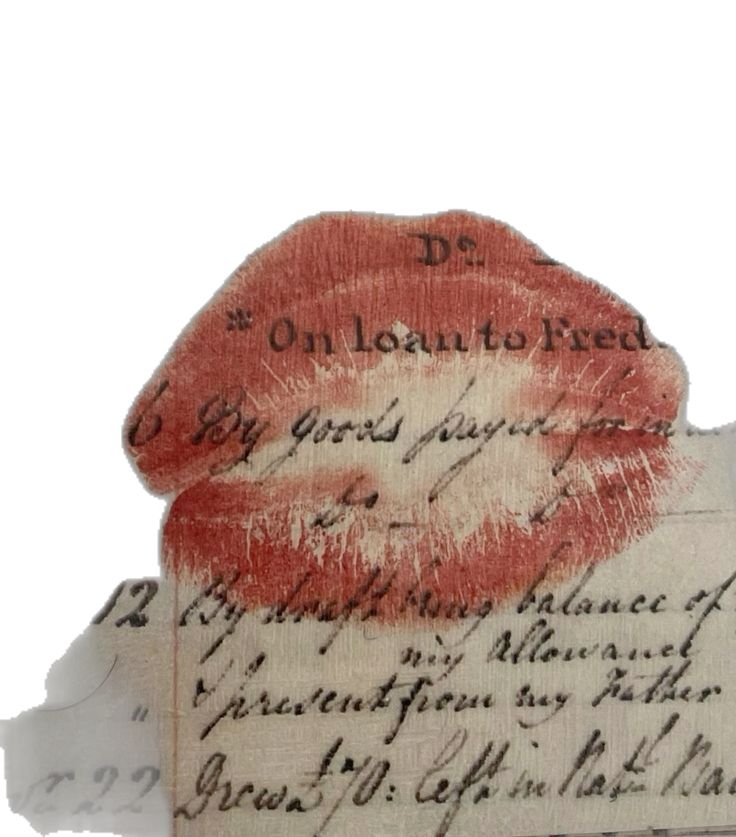 Do
* On loan to Fred.
6 By goods payed for in
Do -
12 By draft being balance of
my allowance
" & present from my Father
22 Drew £70: left in Natl. Ba